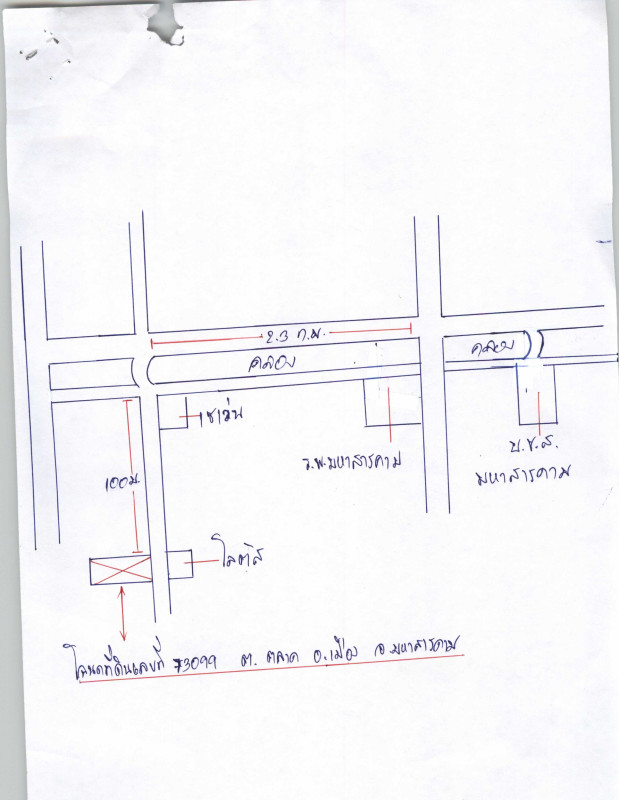 2.3 ก.ม.
คลอง
คลอง
เซเว่น
ร.พ.มหาสารคาม
บ.ข.ส.
มหาสารคาม
100ม.
โลตัส
โฉนดที่ดินเลขที่ 73099 ต. ตลาด อ.เมือง จ.มหาสารคาม